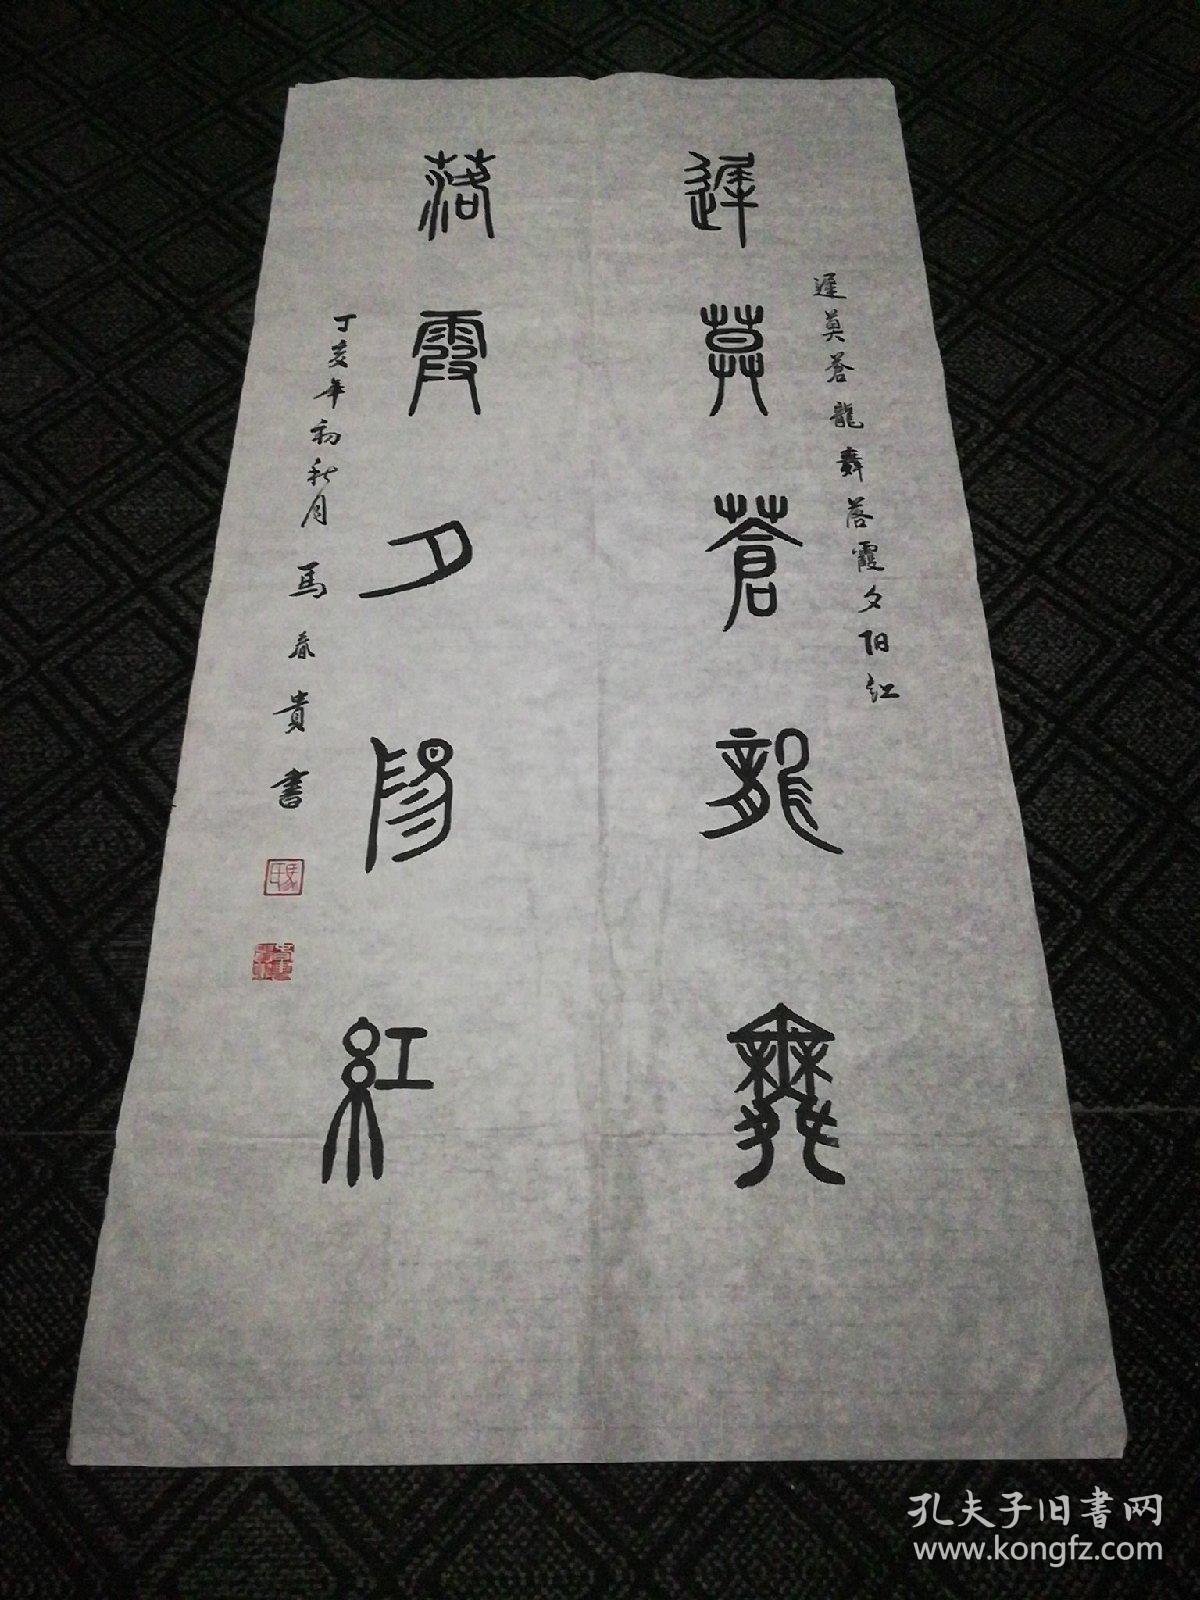 遲莫蒼龍舞落霞夕阳红
遲莫蒼龍舞
落霞夕陽紅
丁亥年初秋月馬春貴書
孔夫子旧書网
www.kongfz.com